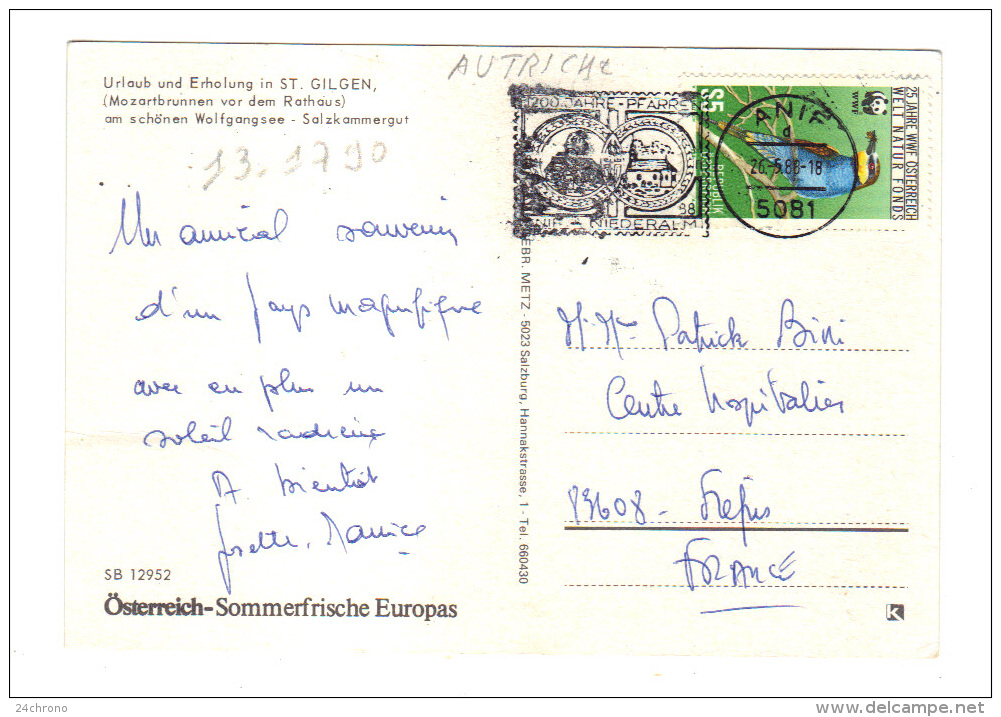 AUTRICHE
Urlaub und Erholung in ST. GILGEN,
(Mozartbrunnen vor dem Rathaus)
am schönen Wolfgangsee - Salzkammergut
13.1790
Un amical souvenir
d'un pays magnifique
avec en plus un
soleil radieux
A bientôt
Josette, Maurice
SB 12952
Österreich-Sommerfrische Europas
1200 JAHRE - PFARRE
ANIF - NIEDERALM
ANIF
d
26.5.88-18
5081
S5
25 JAHRE WWF ÖSTERREICH
WELT NATUR FONDS
WWF
REPUBLIK
GEBR. METZ - 5023 Salzburg, Hannakstrasse, 1 - Tel. 660430
M. Mme Patrick Bini
Centre hospitalier
83608 - Fréjus
FRANCE
K
24chrono
delcampe.net